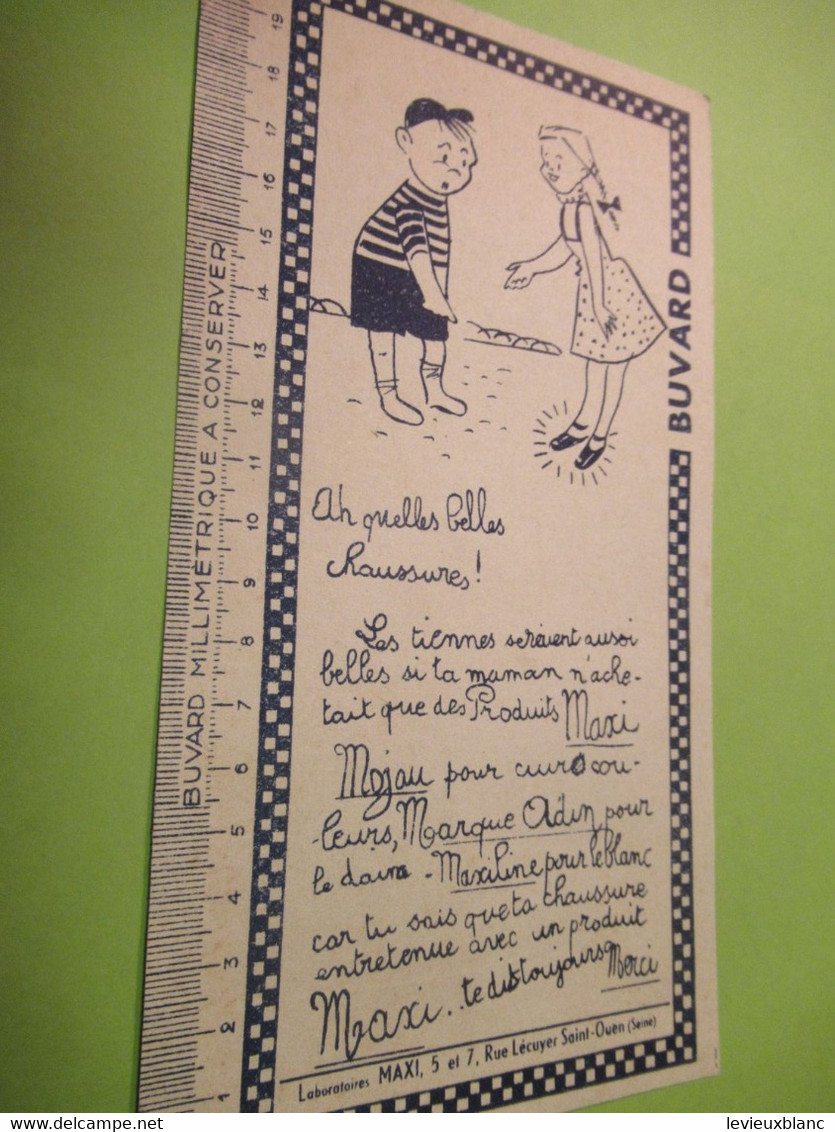 19
18
17
16
15
14
13
12
11
10
9
8
7
6
5
4
3
2
1
BUVARD MILLIMÉTRIQUE A CONSERVER
BUVARD
Ah quelles belles
chaussures!
Les tiennes seraient aussi
belles si ta maman n'ache-
tait que des Produits Maxi
Mojau pour cuirs cou-
leurs, Marque Odin pour
le daim - Maxiline pour le blanc
car tu sais que ta chaussure
entretenue avec un produit
Maxi.. te dit toujours Merci
Laboratoires MAXI, 5 et 7, Rue Lécuyer Saint-Ouen (Seine)
delcampe.net
levieuxblanc